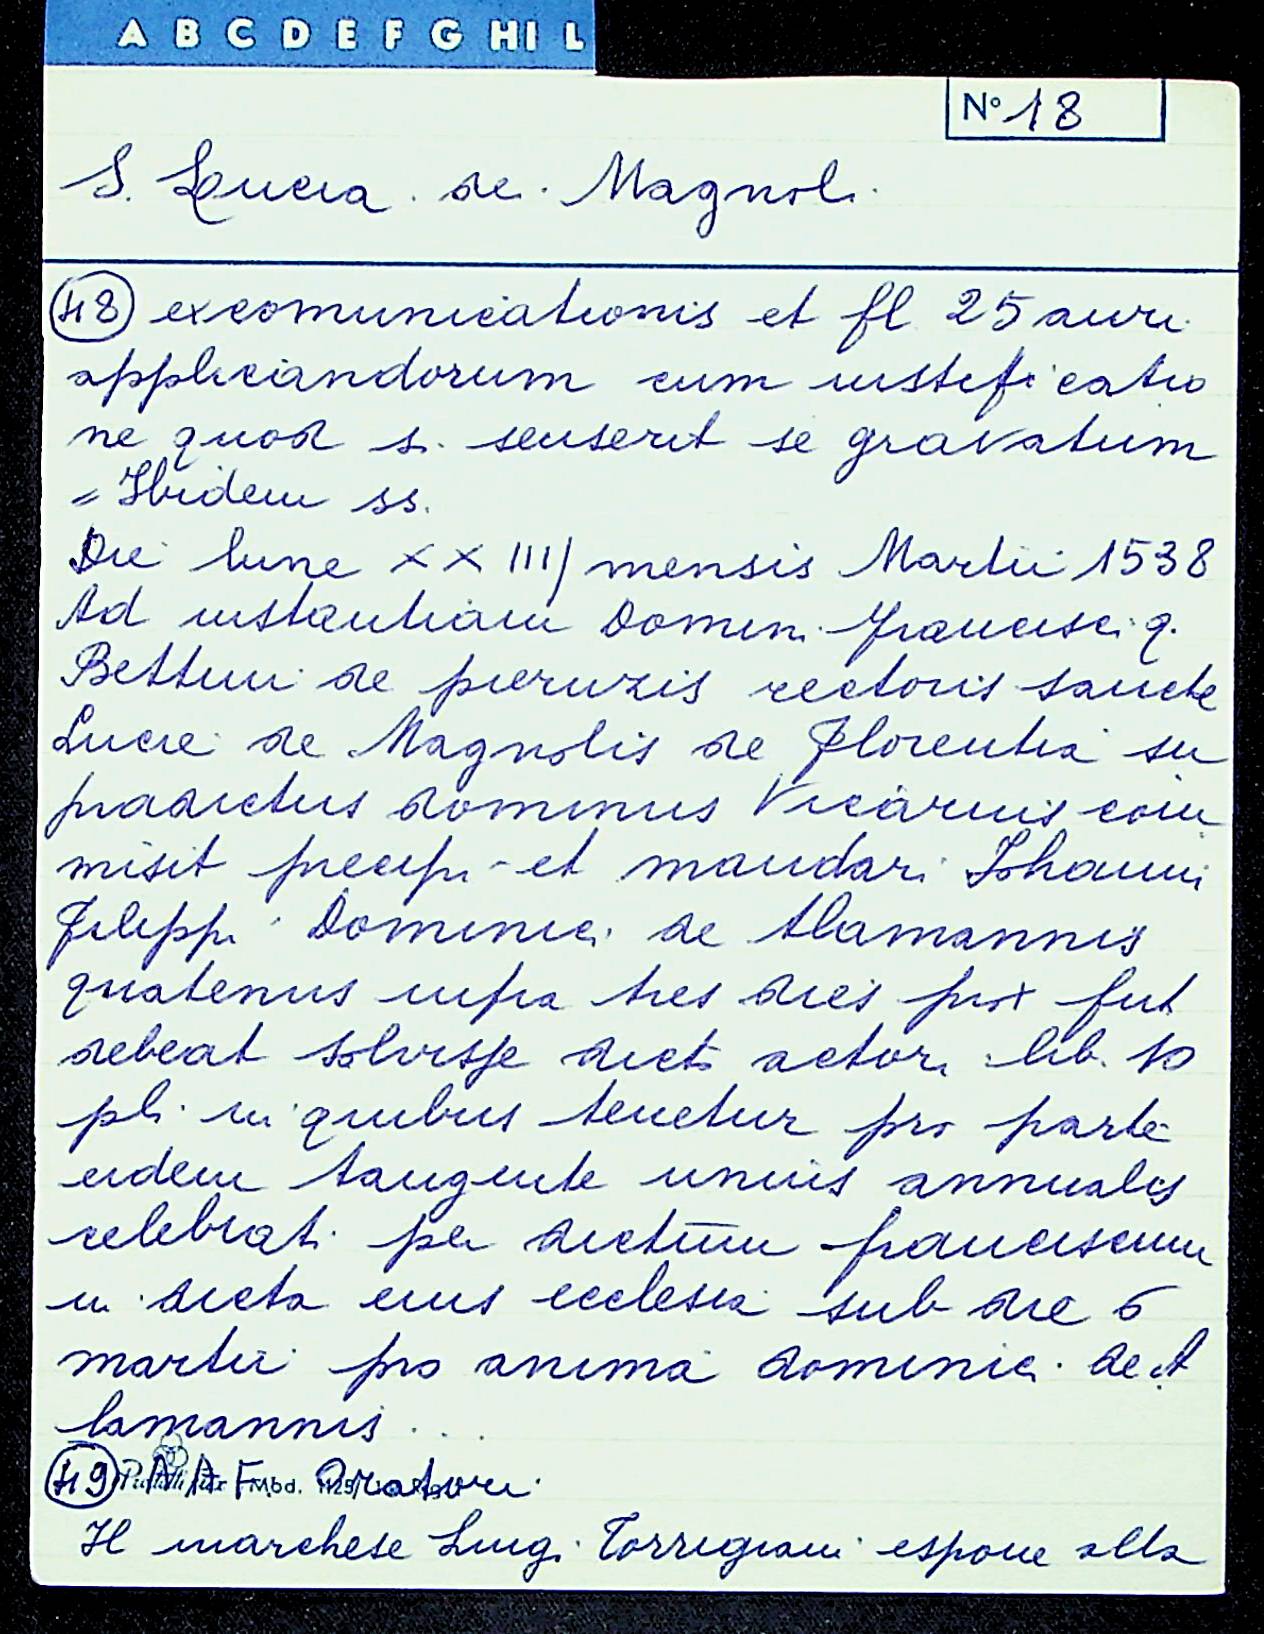 A B C D E F G HI L
N° 18
S. Lucia de Magnoli
48 excomunicationis et fl 25 auri
appliciandorum cum iustificatio
ne quod s. senserit se gravatum
= Ibidem ss.
Die lune XXIII mensis Martii 1538
Ad instantiam Domini Francisci q.
Bettini de peruzis rectoris sancte
Lucie de Magnolis de Florentia su
pradictus dominus Vicarius com
misit precipi et mandari Johanni
Filippi Dominici de Alamannis
quatenus infra tres dies prox fut
debeat solvisse dicto actori lib. 10
pli in quibus tenetur pro parte
eidem tangente unius annualis
celebrati per dictum franciscum
in dicta eius ecclesia sub die 6
martii pro anima dominici de A
lamannis ...
49 A A F Oratori
Il marchese Luigi Torrigiani espone alla